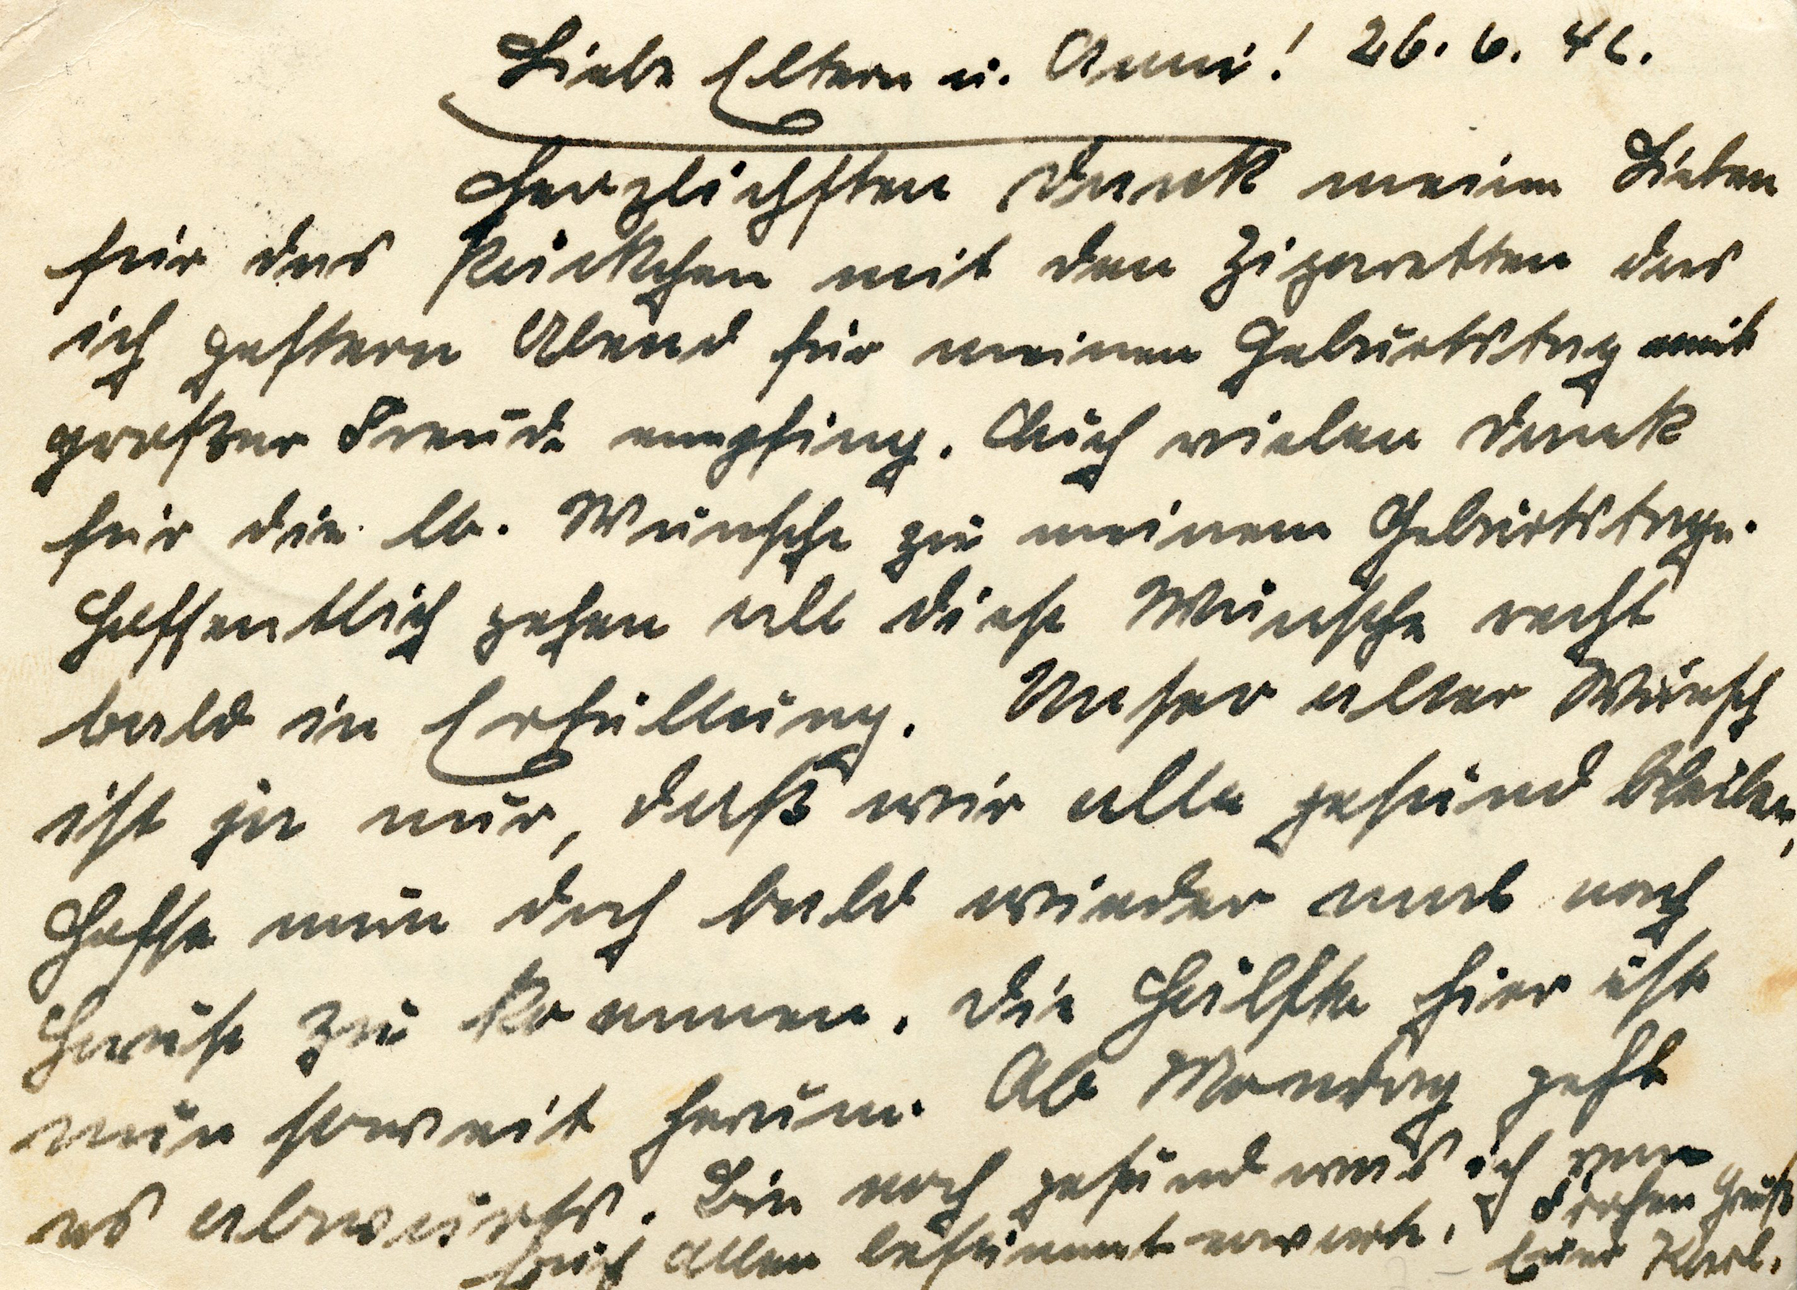 Liebe Eltern u. Anni! 26. 6. 42.
Herzlichsten Dank meine Lieben
für das Päckchen mit den Zigaretten das
ich gestern Abend für meinen Geburtstag mit
großer Freude empfing. Auch vielen Dank
für die lb. Wünsche zu meinem Geburtstage.
Hoffentlich gehen all diese Wünsche recht
bald in Erfüllung. Unser aller Wunsch
ist ja nur, daß wir alle gesund bleiben,
Hoffe nun doch bald wieder mal nach
Hause zu kommen. Die Hälfte hier ist
nun soweit herum. Ab Montag geht
es abwärts. Bin noch gesund was ich von
Euch allen bestimmt erwarte. Frohen Gruß
Euer Karl.